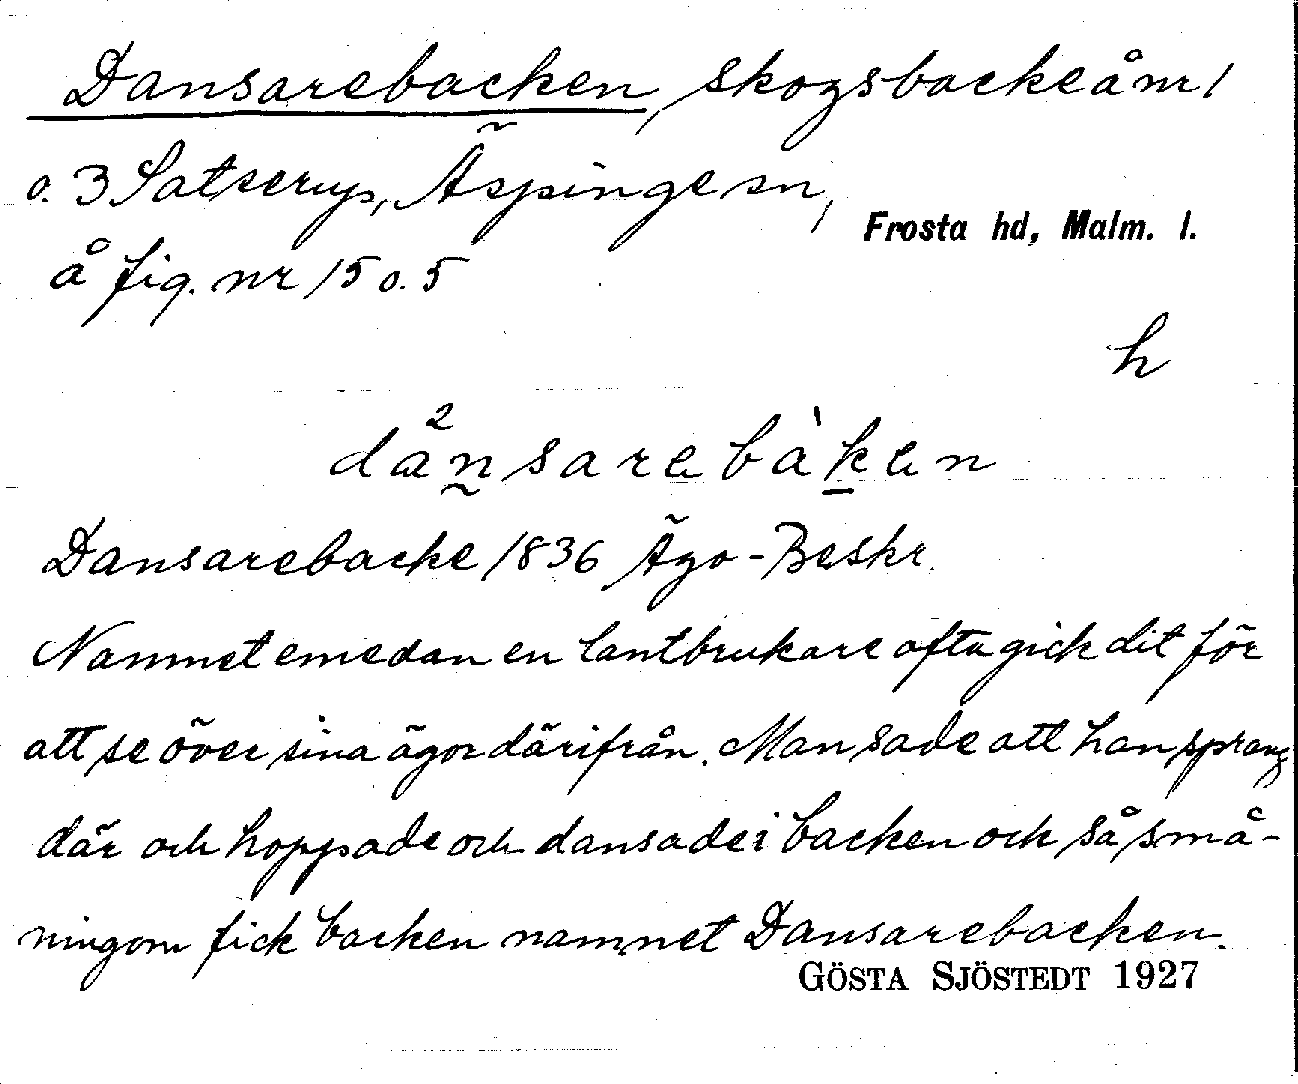 Dansarebacken, skogsbacke å nr 1
o. 3 Satserup, Äspinge sn,
Frosta hd, Malm. l.
å fig. nr 15 o. 5
h
Dansarebacke 1836 Ägo-Beskr.
Namnet emedan en lantbrukare ofta gick dit för
att se över sina ägor därifrån. Man sade att han sprang
där och hoppade och dansade i backen och så små-
ningom fick backen namnet Dansarebacken.
GÖSTA SJÖSTEDT 1927